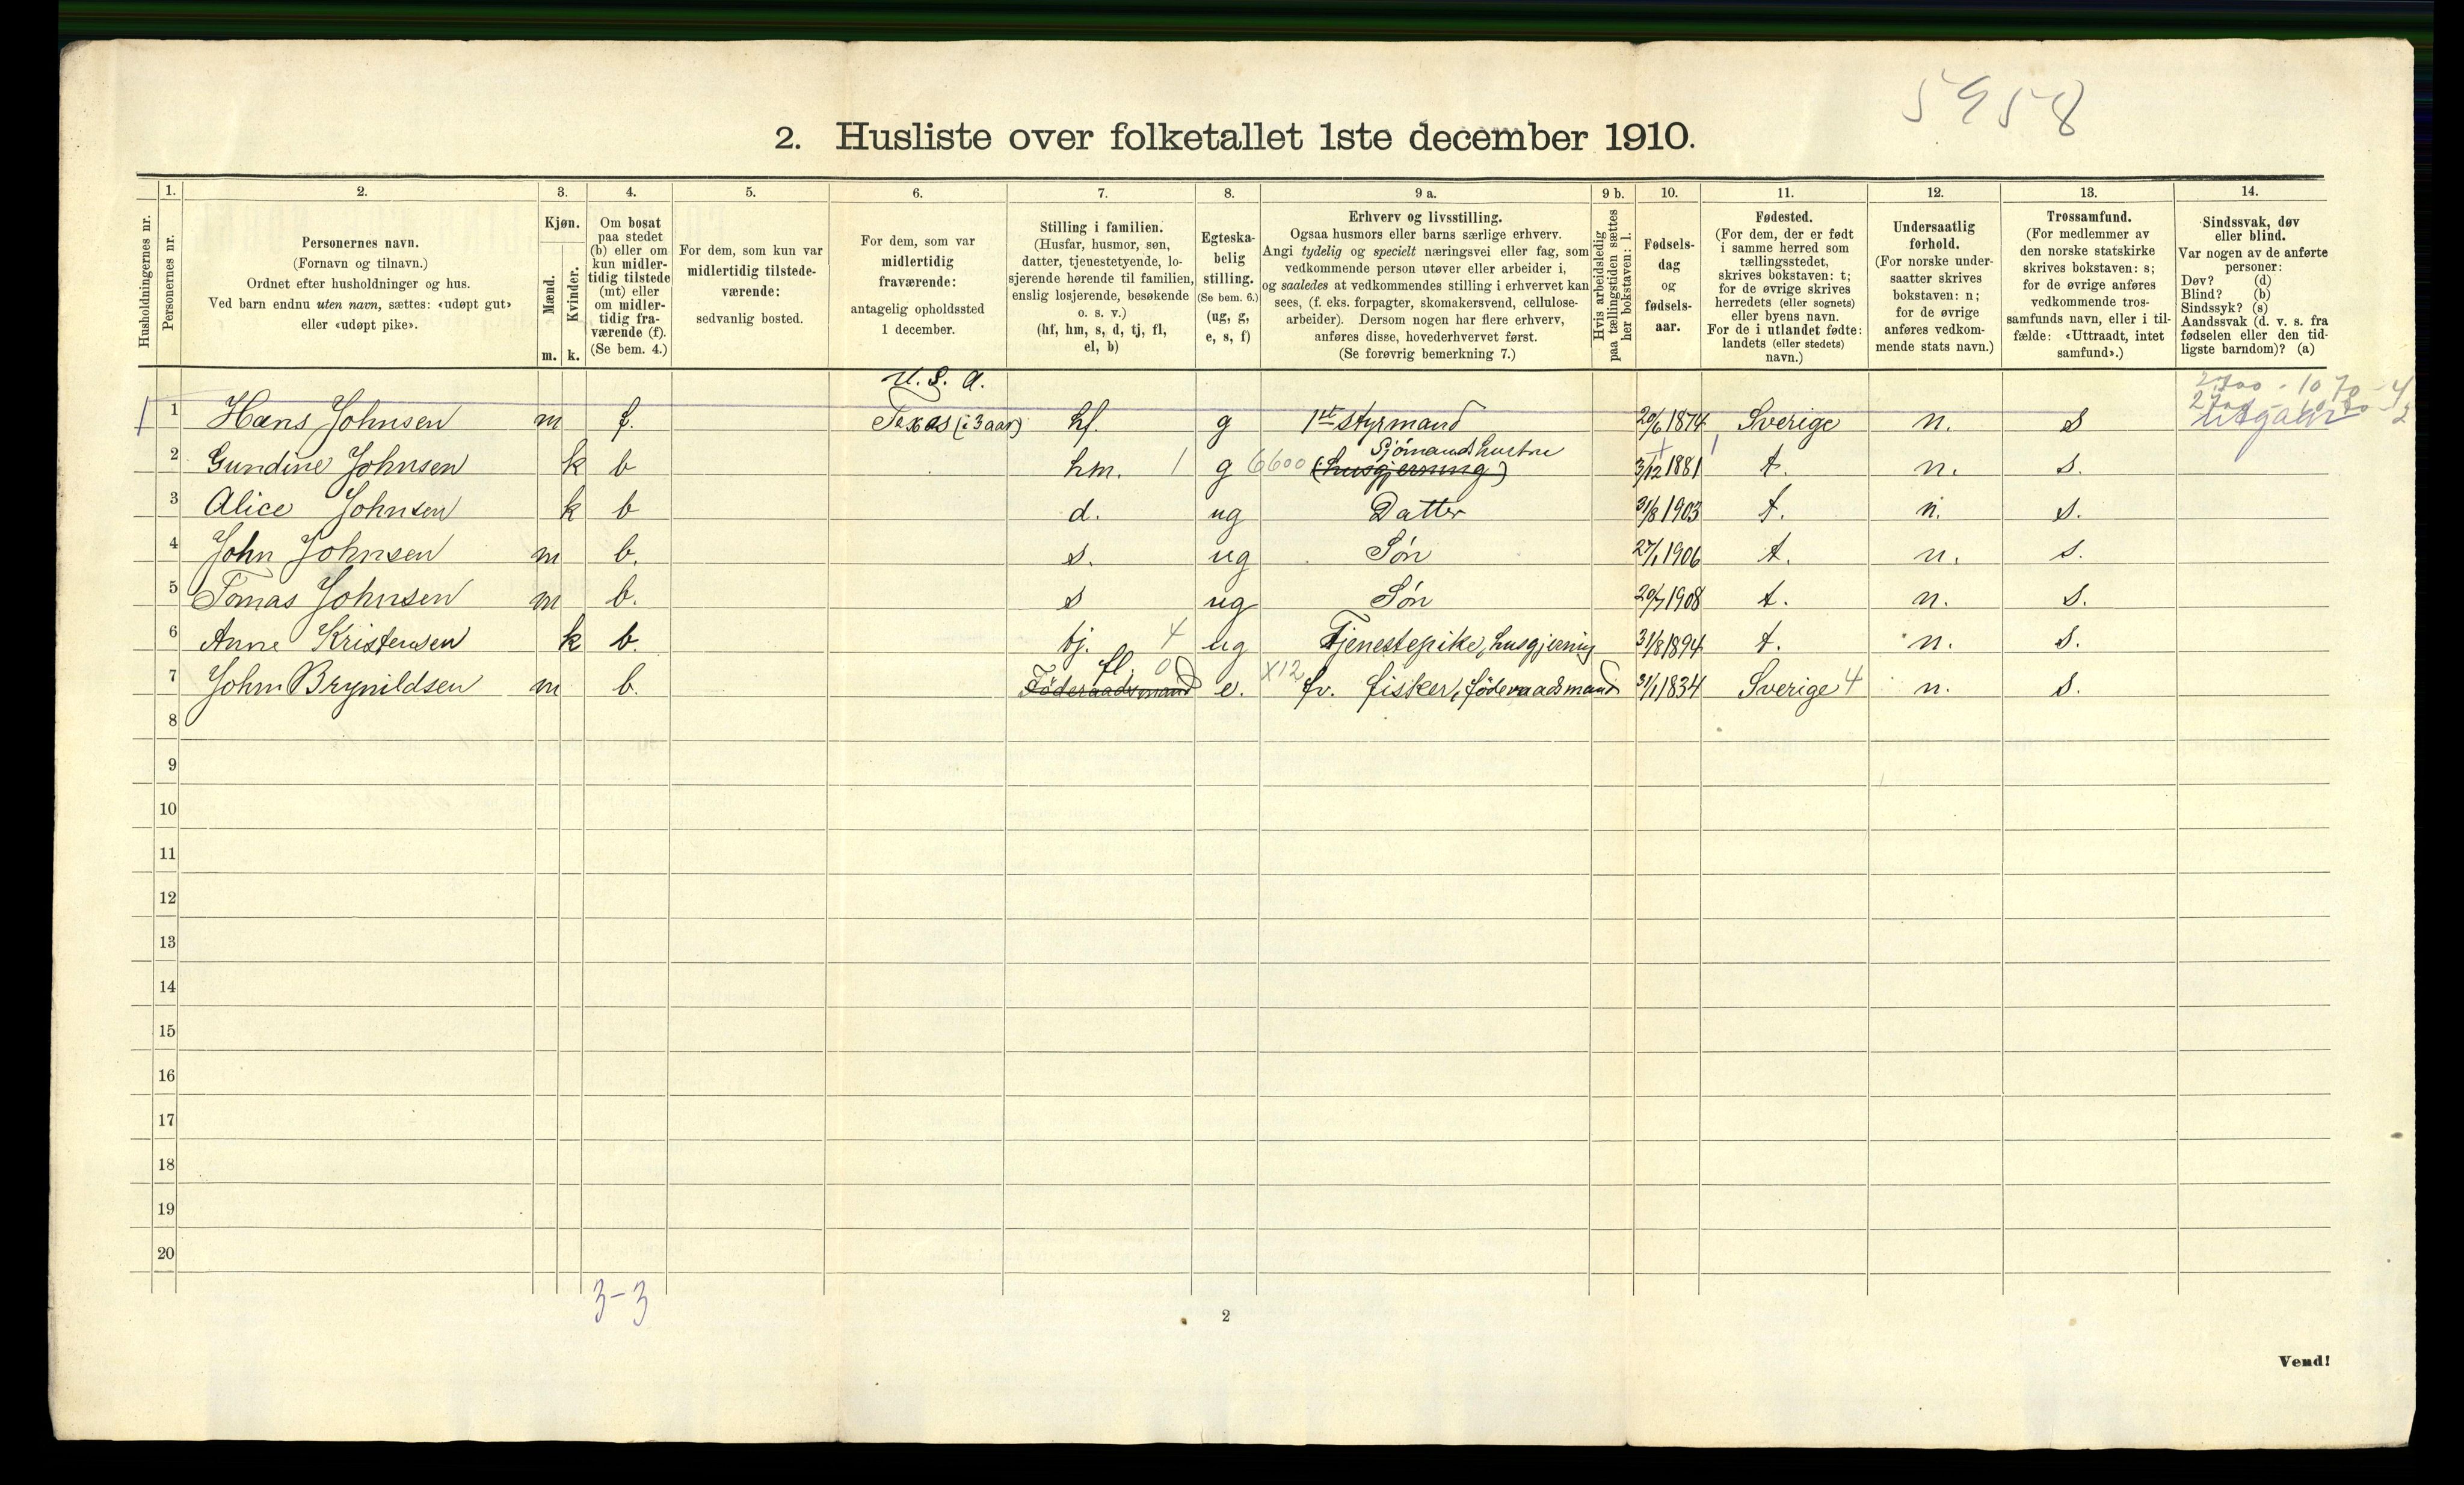 5958
2. Husliste over folketallet 1ste december 1910.
Husholdningernes nr.
1.
Personernes nr.
2.
Personernes navn.
(Fornavn og tilnavn.)
Ordnet efter husholdninger og hus.
Ved barn endnu uten navn, sættes: «udøpt gut»
eller «udøpt pike».
3.
Kjøn.
Mænd.
Kvinder.
m. k.
4.
Om bosat
paa stedet
(b) eller om
kun midler-
tidig tilstede
(mt) eller
om midler-
tidig fra-
værende (f).
(Se bem. 4.)
5.
For dem, som kun var
midlertidig tilstede-
værende:
sedvanlig bosted.
6.
For dem, som var
midlertidig
fraværende:
antagelig opholdssted
1 december.
7.
Stilling i familien.
(Husfar, husmor, søn,
datter, tjenestetyende, lo-
sjerende hørende til familien,
enslig losjerende, besøkende
o. s. v.)
(hf, hm, s, d, tj, fl,
el, b)
8.
Egteska-
belig
stilling.
(Se bem. 6.)
(ug, g,
e, s, f)
9 a.
Erhverv og livsstilling.
Ogsaa husmors eller barns særlige erhverv.
Angi tydelig og specielt næringsvei eller fag, som
vedkommende person utøver eller arbeider i,
og saaledes at vedkommendes stilling i erhvervet kan
sees, (f. eks. forpagter, skomakersvend, cellulose-
arbeider). Dersom nogen har flere erhverv,
anføres disse, hovederhvervet først.
(Se forøvrig bemerkning 7.)
9 b.
Hvis arbeidsledig
paa tællingstiden sættes
her bokstaven: l.
10.
Fødsels-
dag
og
fødsels-
aar.
11.
Fødested.
(For dem, der er født
i samme herred som
tællingsstedet,
skrives bokstaven: t;
for de øvrige skrives
herredets (eller sognets)
eller byens navn.
For de i utlandet fødte:
landets (eller stedets)
navn.)
12.
Undersaatlig
forhold.
(For norske under-
saatter skrives
bokstaven: n;
for de øvrige
anføres vedkom-
mende stats navn.)
13.
Trossamfund.
(For medlemmer av
den norske statskirke
skrives bokstaven: s;
for de øvrige anføres
vedkommende tros-
samfunds navn, eller i til-
fælde: «Uttraadt, intet
samfund».)
14.
Sindssvak, døv
eller blind.
Var nogen av de anførte
personer:
Døv? (d)
Blind? (b)
Sindssyk? (s)
Aandssvak (d. v. s. fra
fødselen eller den tid-
ligste barndom)? (a)
U. S. A.
1 Hans Johnsen m f. Texas (i 3 aar) hf. g 1ste styrmand 20/6 1874 Sverige n. s utgaar
Sjömands hustru
2 Gundine Johnsen k b hm. 1 g 6600 (husgjerning) 3/12 1881 t. n. s.
3 Alice Johnsen k b d. ug Datter 31/8 1903 t. n. s.
4 John Johnsen m b. s. ug Søn 27/1 1906 t. n. s.
5 Tomas Johnsen m b. s ug Søn 20/7 1908 t. n. s.
6 Anne Kristensen k b. tj. 4 ug Tjenestepike, husgjerning 31/8 1894 t. n. s.
fl. 0
7 John Brynildsen m b. Föderaadsmand e. X12 fv. fisker, föderaadsmand 31/1 1834 Sverige 4 n. s.
8
9
10
11
12
13
14
15
16
17
18
19
20
3-3
2
Vend!